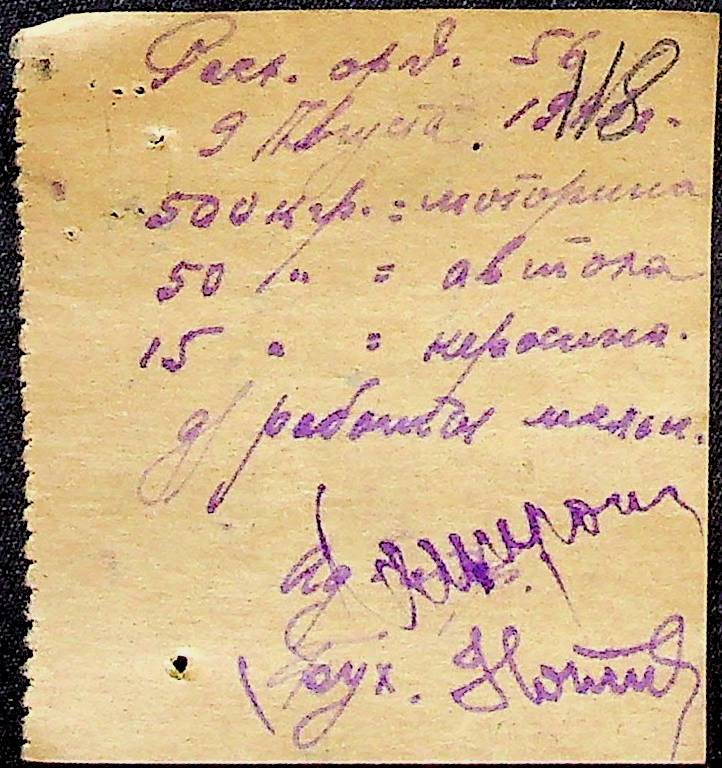 Расх. орд. 56
118
9 Августа 19
500 кгр. = моторина
50 " = автола
15 " = керосина.
д/ работы
Бух.